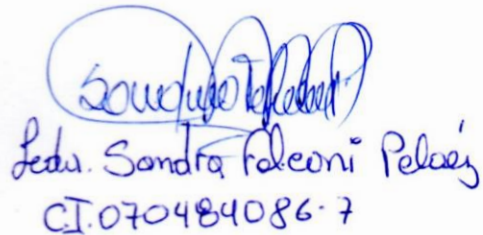 Lcda. Sandra Falconi Peláez
C.I. 070484086-7